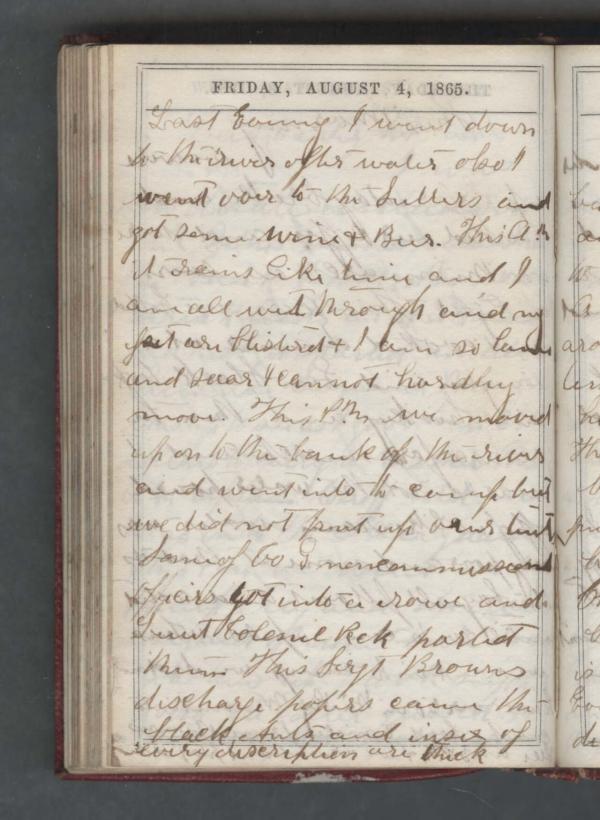 FRIDAY, AUGUST 4, 1865.
Last Evning I went down
to the river after water also I
went over to the Sutlers and
got some wine & Beer. This A.M
it rains like time and I
am all wet through and my
feet are blisterd & I am so lame
and soar I cannot hardley
move. This P.M we moved
up on to the bank of the river
and went into to camp but
we did not put up ours tent
Some of Co I noncommissiend
officers got into a rowe and
Leiut Colesnel Peck partiet
them This Sergt Browns
discharge papers came the
black Ants and insex of
every discription are thick